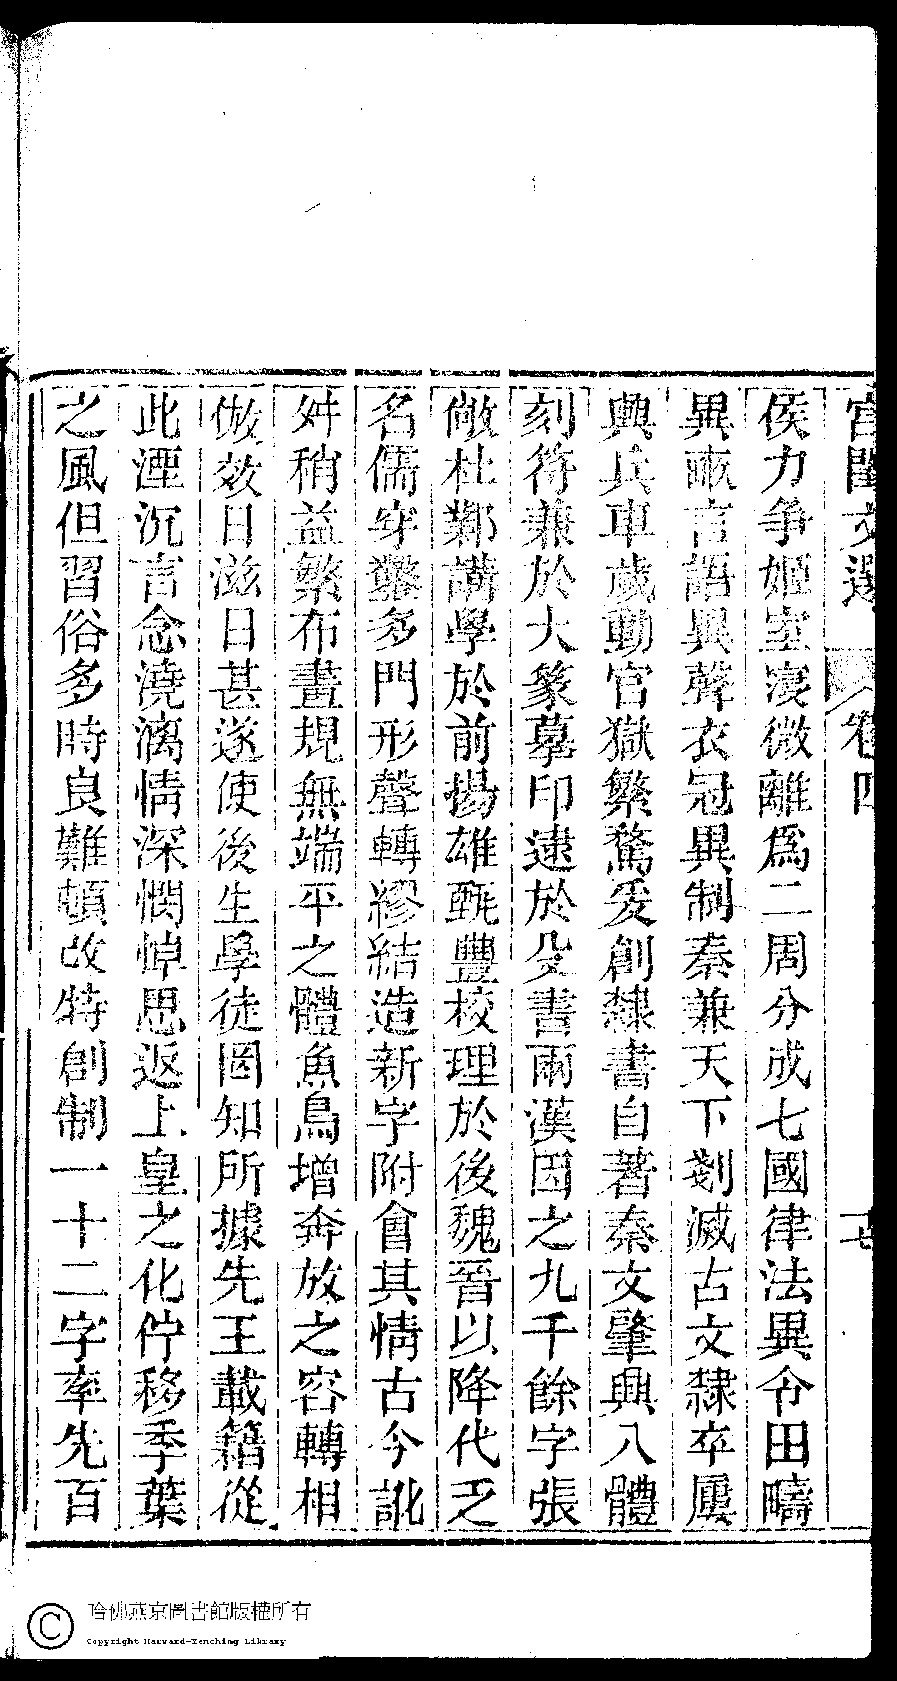 宮閨文選 卷四
侯力争姬室淩微離爲二周分成七國律法異令田疇
異畝言語異聲衣冠異制秦兼天下剗滅古文隸卒屢
興兵車歲動官獄繁騖爰創隸書自著秦文肇興八體
刻符兼於大篆摹印逮於殳書兩漢因之九千餘字張
敞杜鄴講學於前揚雄甄豐校理於後魏晉以降代乏
名儒穿鑿多門形聲轉繆結造新字附會其情古今訛
舛稍益繁布畫規無端平之體魚鳥增奔放之容轉相
倣效日滋日甚遂使後生學徒罔知所據先王載籍從
此湮沉言念澆漓情深憫悼思返上皇之化佇移季葉
之風但習俗多時良難頓改特創制一十二字率先百
哈佛燕京圖書館版權所有
Copyright Harvard-Yenching Library